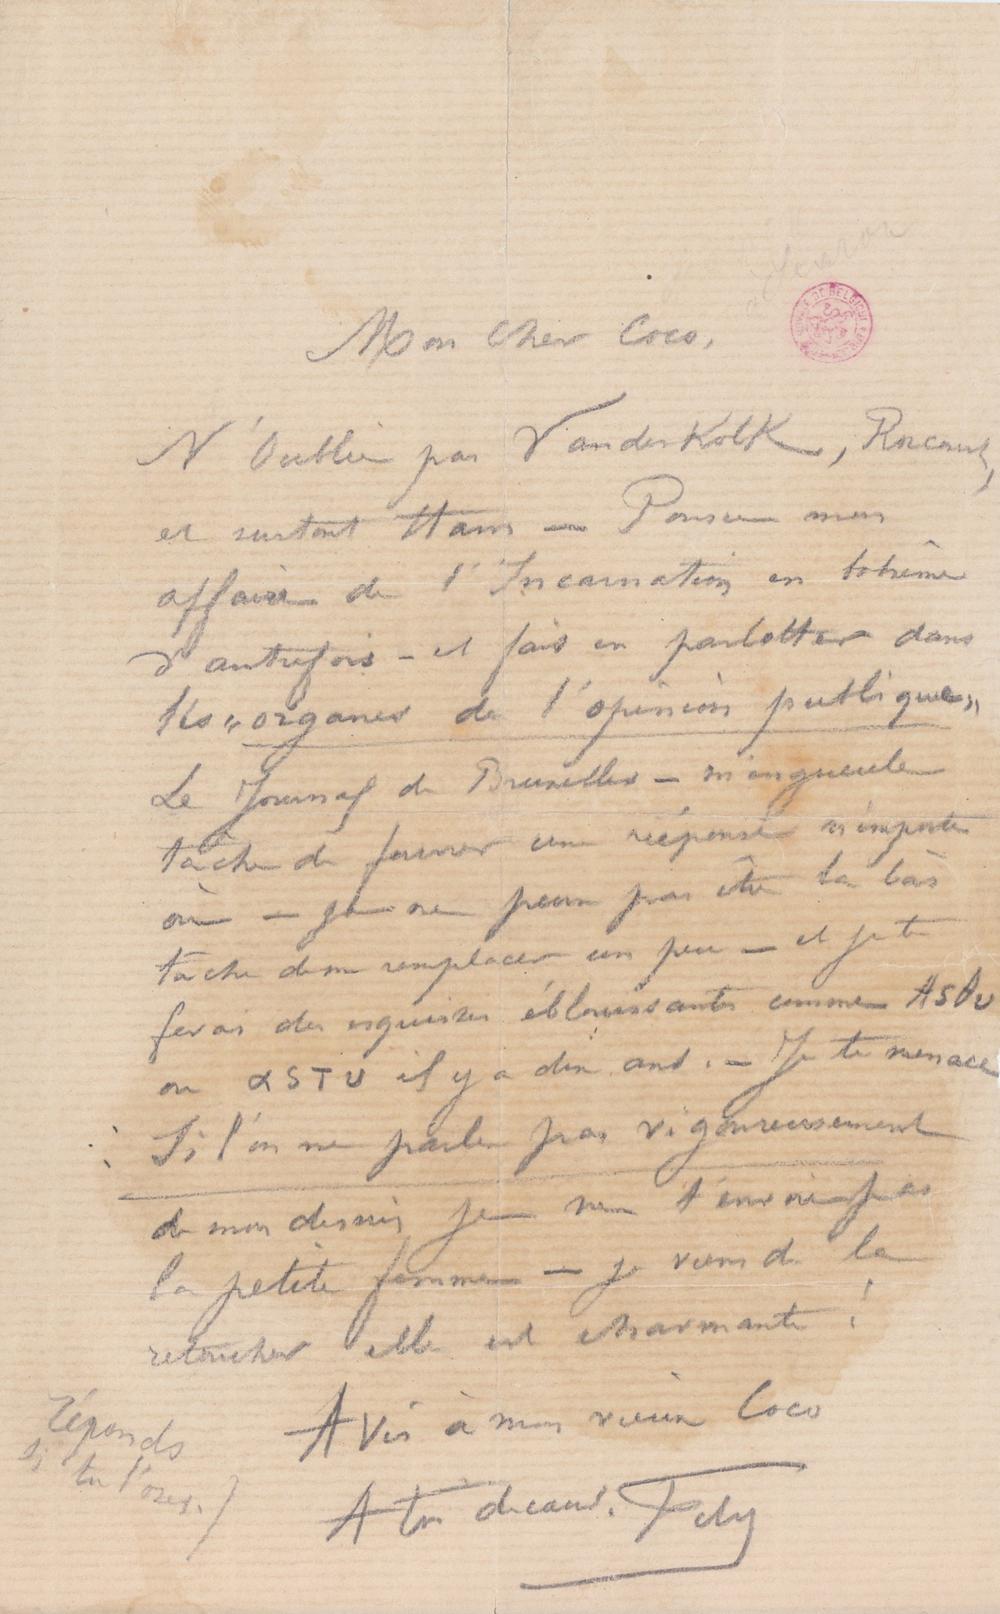 Mon Cher Coco,
N'Oublie pas VanderKolK,
et surtout Ham — Pousse mon
affaire de l'Incarnation en bohême
d'autrefois – et fais en parlotter dans
les „organes de l'opinion publique„
Le Journal de Bruxelles – m'engueule
tâche de fourrer une réponse n'importe
où – je ne peux pas être là bas
tâche de me remplacer un peu – et je te
ferai des esquisses éblouissantes comme
ou il y a dix ans. – Je te menace
Si l'on ne parle pas vigoureusement
de mon dessin je ne t'envoie pas
la petite femme – je viens de la
retoucher elle est charmante !
Avis à mon vieux Coco
A toi de cœur. Fely
réponds
si tu l'oses. /